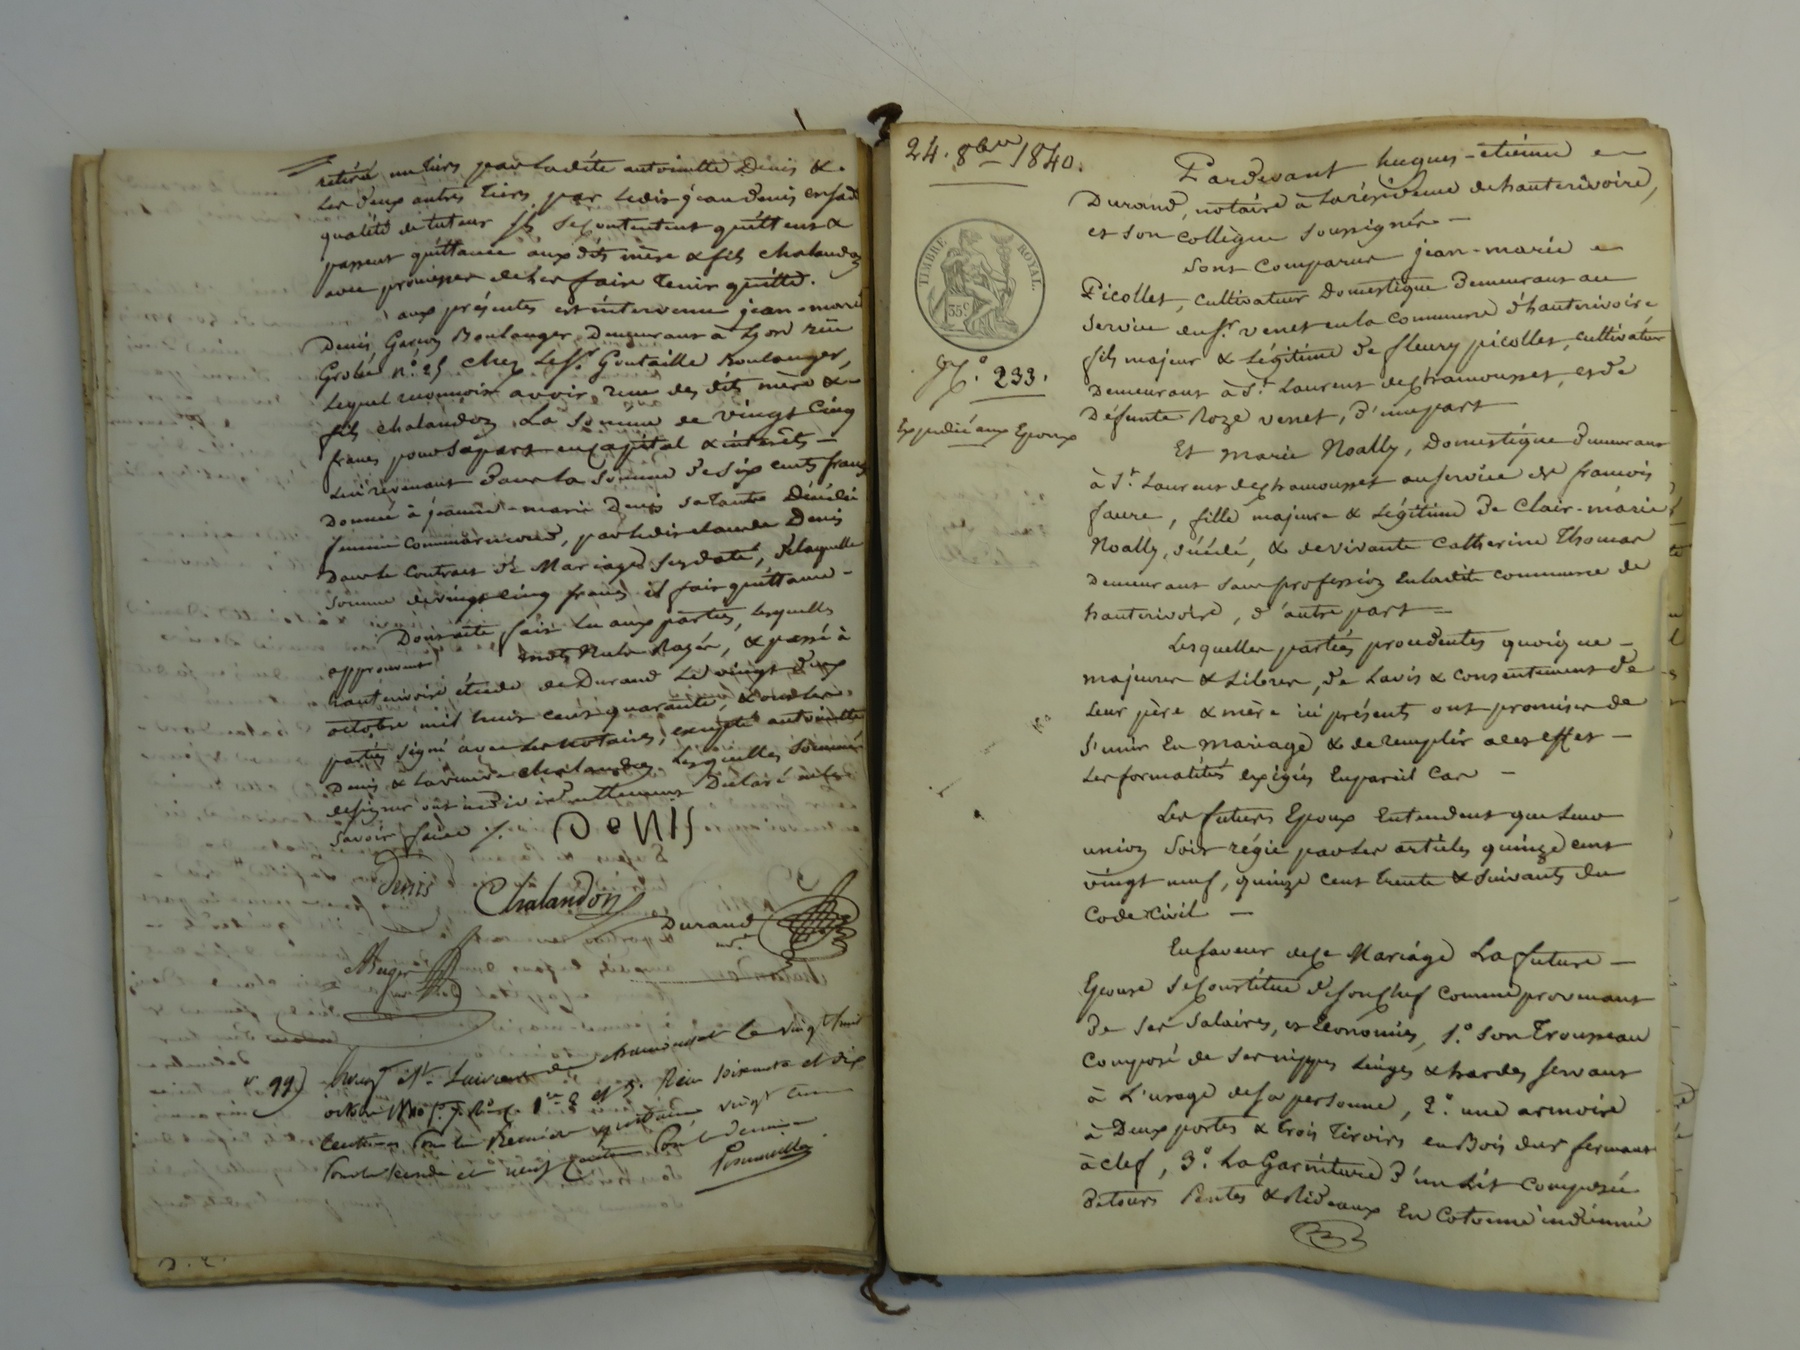 retiré un tiers par ladite antoinette Denis &
les deux autres tiers par ledit jean denis en sad
qualité de tuteur Ils se contentent quittent &
passent quittance aux dits mère & fils chalandon
avec promesse de les faire tenir quitte.
aux présentes est intervenu jean-marie
Denis Garçon Boulanger, Demeurant à Lyon rüe
Grolée n.° 25 chez le S.r Goutaille Boulanger,
Lequel reconnoit avoir reçu des dits mère &
fils chalandon La Somme de vingt Cinq
francs pour sa part en capital & intérêts —
Lui revenant dans la Somme de Six cents francs
Donnée à jeanne-marie Denis sa tante Décédée
femme Commarmond, par ledit claude Denis
Dans le Contrat de Mariage Susdaté, De laquelle
somme de vingt cinq francs il fait quittance -
Dont acte, fait Lu aux parties, lesquelles
approuvent mots Nuls Rayés, & passé à
hauterivoire étude de Durand Le vingt deux
octobre mil huit cent quarante, & ont les
parties signé avec les Notaires, excepté antoinette
Denis & la veuve chalandon, Lesquelles Sommées
de signer ont individuellement Déclaré ne le
savoir faire /.
DeNIS
Denis Chalandon
Durand
n.re
chalandon
v.° 99) Enreg.é à S.t Laurent de chamousset le vingt huit
octobre 1840 f.° 7. R.o c.es 1.re 2 et 3. Reçu soixante et dix
Centimes Pour la Première quittance vingt cinq
Pour la seconde et neuf centimes Pour le décime
24. 8bre 1840.
TIMBRE ROYAL.
35c
N.° 233.
Expédié aux Epoux
Pardevant hugues-étienne
Durand, notaire à la résidence de hauterivoire,
et son collègue soussignés —
Sont Comparus jean-marie
Picollet, cultivateur Domestique Demeurant au
Service du S.r venet en la Commune d'hauterivoire
fils majeur & Légitime de fleury picollet, cultivateur
Demeurant à S.t Laurent de chamousset, et de
Défunte Roze venet, D'une part
Et marie Noally, Domestique Demeurant
à S.t Laurent de chamousset au service de françois
faure, fille majeure & Légitime de Clair-marie
Noally, décédé, & de vivante Catherine Thomas
Demeurant sans profession en ladite commune de
hauterivoire, d'autre part —
Lesquelles parties procédantes quoique —
majeures & Libres, de L'avis & consentement de
Leur père & mère ici présents ont promises de
s'unir En mariage & de remplir à cet effet —
Les formalités exigées En pareil Cas —
Les futurs Epoux Entendent que Leur
union soit régie par les articles quinze cent
vingt neuf, quinze cent trente & suivants du
Code Civil —
En faveur de ce Mariage La future —
Epouse se constitue de son chef comme provenant
de ses Salaires, et Economies, 1.° Son Trousseau
Composé de ses nippes Linges & hardes servant
à L'usage de sa personne, 2.° une armoire
à Deux portes & trois Tiroirs en Bois dur fermant
à clef, 3.° La Garniture D'un Lit composée
de tours Pentes & Rideaux En Cotonne indienne